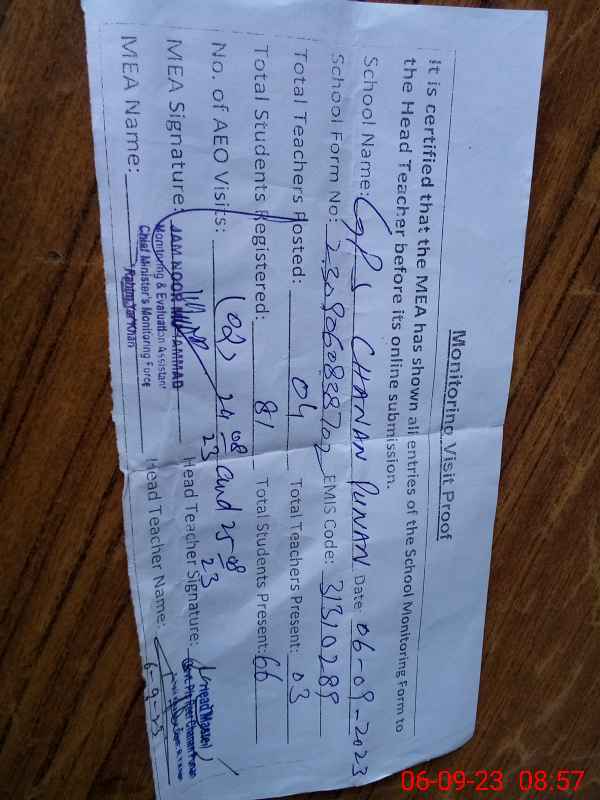 Monitoring Visit Proof
It is certified that the MEA has shown all entries of the School Monitoring Form to
the Head Teacher before its online submission.
School Name: GPS CHANAN PUNAN Date: 06-09-2023
School Form No: 2309060838702 EMIS Code: 31310289
Total Teachers Posted: 04 Total Teachers Present: 03
Total Students Registered: 81 Total Students Present: 66
No. of AEO Visits: (02) 24-08-23 and 25-08-23
MEA Signature: Head Teacher Signature:
JAM NOOR MUHAMMAD
Monitoring & Evaluation Assistant
Chief Minister's Monitoring Force
Rahim Yar Khan
Head Master
MEA Name: Head Teacher Name:
6-9-23
06-09-23 08:57